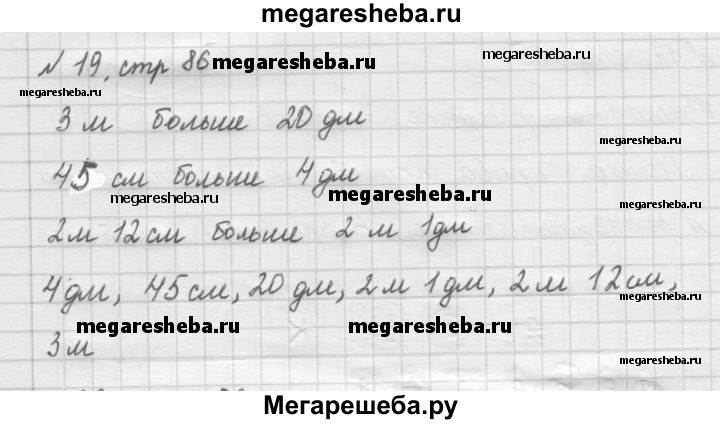 megaresheba.ru
N 19, стр 86 megaresheba.ru
megaresheba.ru
megaresheba.ru
3 м больше 20 дм
megaresheba.ru
45 см больше 4 дм
megaresheba.ru megaresheba.ru
megaresheba.ru
2 м 12 см больше 2 м 1 дм
4 дм, 45 см, 20 дм, 2 м 1 дм, 2 м 12 см,
megaresheba.ru
megaresheba.ru megaresheba.ru
3 м
megaresheba.ru
Мегарешеба.ру